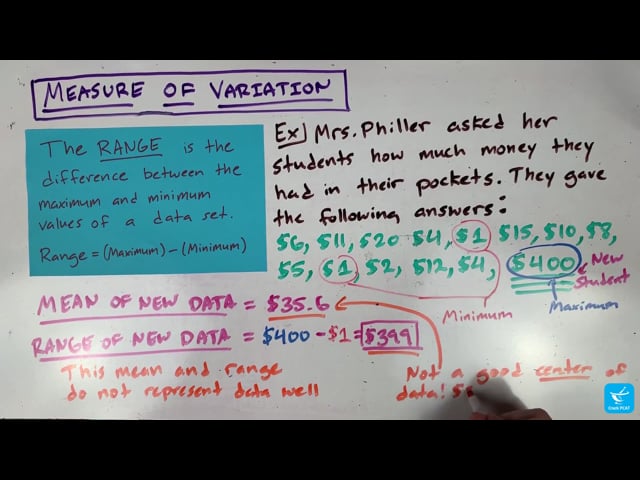 MEASURE OF VARIATION
The RANGE is the
difference between the
maximum and minimum
values of a data set.
Range = (Maximum) - (Minimum)
Ex) Mrs. Philler asked her
students how much money they
had in their pockets. They gave
the following answers:
$6, $11, $20 $4, $1, $15, $10, $8,
$5, $1, $2, $12, $4, $400
New
Student
Minimum
Maximum
MEAN OF NEW DATA = $35.6
RANGE OF NEW DATA = $400 - $1 = $399
This mean and range
do not represent data well
Not a good center of
data!
Crack PCAT